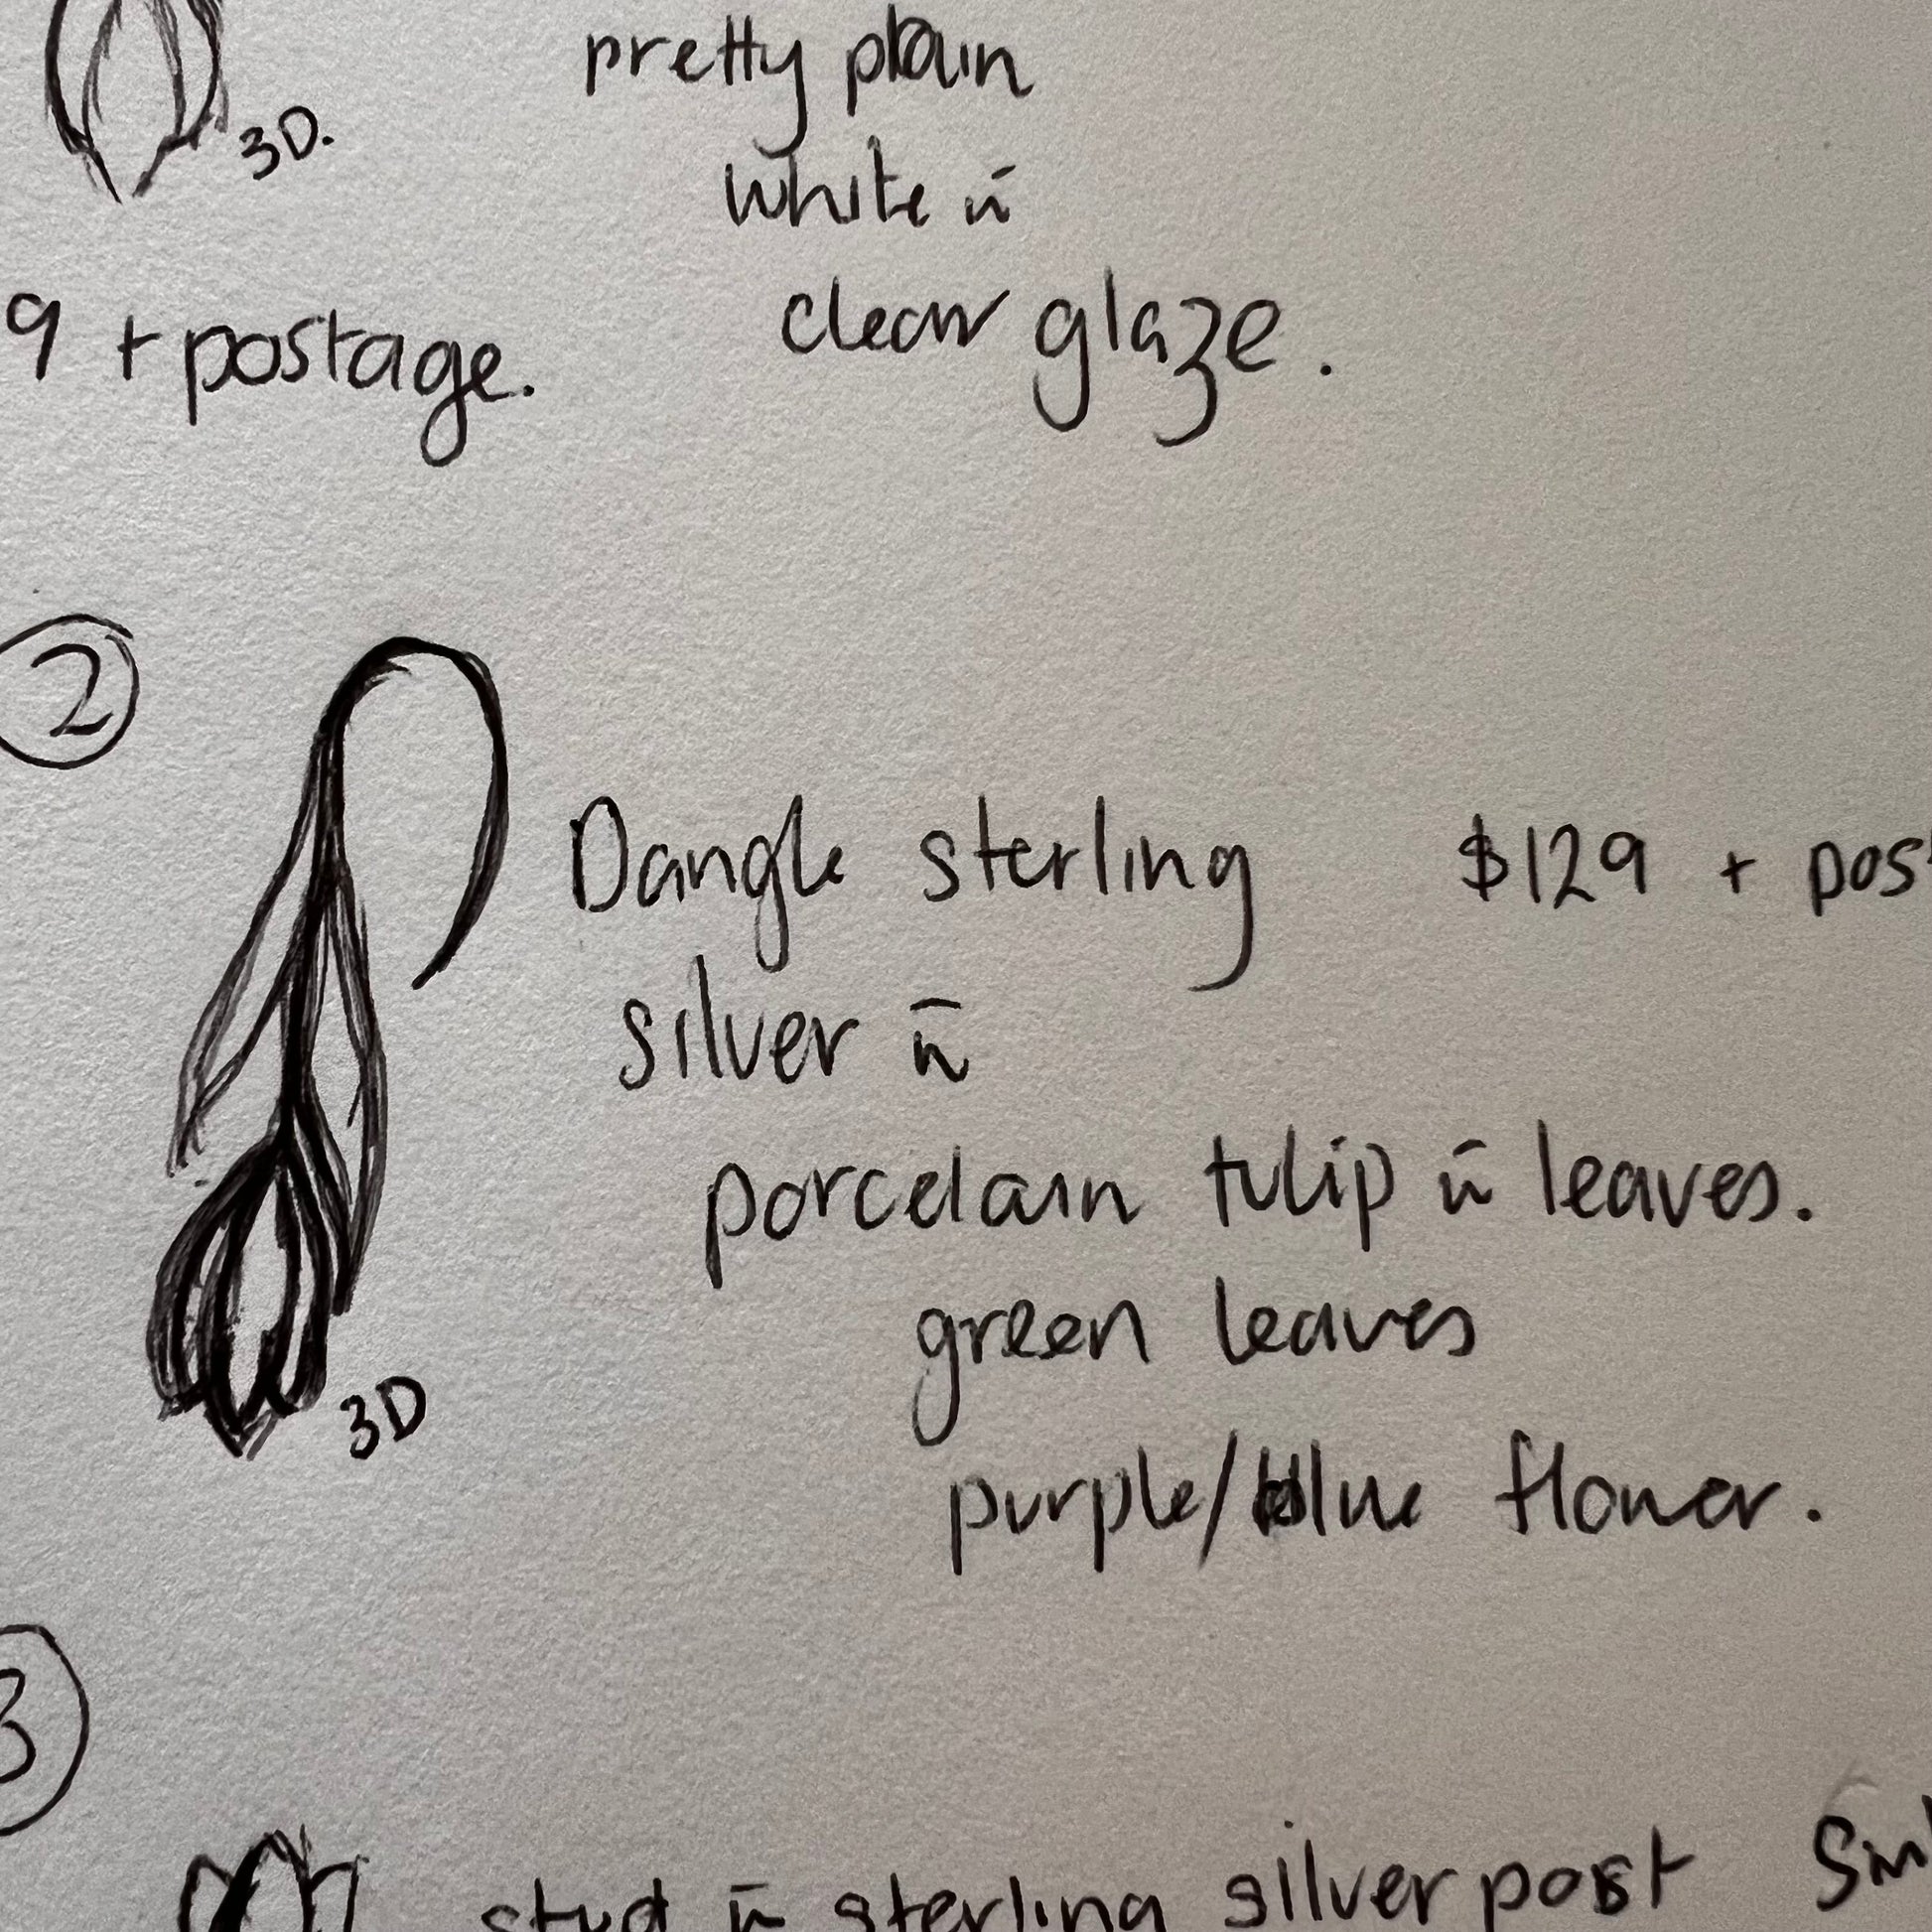 3D.
pretty plain
white w̄
clear glaze.
9 + postage.
2
Dangle sterling $129 + pos
silver w̄
porcelain tulip w̄ leaves.
green leaves
purple/blue flower.
3D
3
stud w̄ sterling silver post